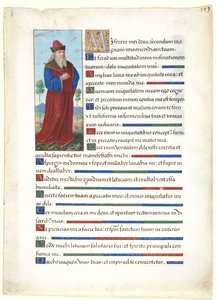 Miserere mei deus: secundum ma
gnam misericordiam tuam.
Et secundum multitudinem miseration
tuarum: dele iniquitatem meam.
Amplius laua me ab iniquitate mea: et
a peccato meo munda me.
Quoniam iniquitatem meam ego cogno
sco: et peccatum meum contra me est semper
Tibi soli peccaui et malum coram te feci:
vt iustificeris in sermonibus tuis et vincas
cum iudicaris.
Ecce enim in iniquitatibus
et in peccatis concepit me mater mea.
Ecce enim veritatem dilexisti: incerta et
occulta sapientie tue manifestasti michi.
Asperges me ysopo et mundabor: lauabis me: et super ni
uem dealbabor.
Auditui meo dabis gaudium et leticiam: et exultabunt ossa
humiliata.
Auerte faciem tuam a peccatis meis: et omnes iniquitates me
as dele.
Cor mundum crea in me deus: et spiritum rectum innoua in
visceribus meis.
Ne proicias me a facie tua: et spiritum sanctum tuum ne auferas
a me.
Redde michi leticiam salutaris tui: et spiritu principali con
firma me.
Docebo iniquos vias tuas: et impii ad te conuertentur.